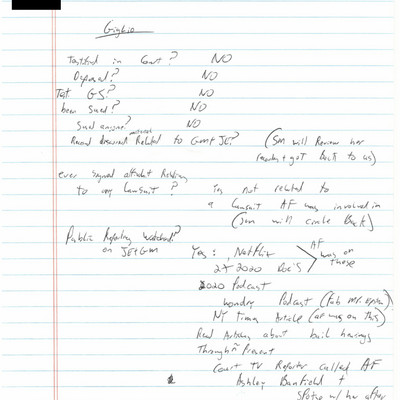 Giglio
Testified in Court? NO
Deposed? NO
Test GJ? NO
been Sued? NO
Sued anyone? NO
Record Related to GM + JE? (SM will Review her
+ get Back to us)
ever signed affidavit Relating
to any Lawsuit? Yes not related to
a Lawsuit AF was involved in
(SM will circle Back)
Public Reporting Watched?
on JE + GM Yes: Netflix
2020 Doc's AF was on these
2020 Podcast
Podcast
NY Times Article (AF was on this)
Read Articles about bail hearings
Through Present
Court TV Reporter called AF
Ashley Banfield +
Spoke w/ her after